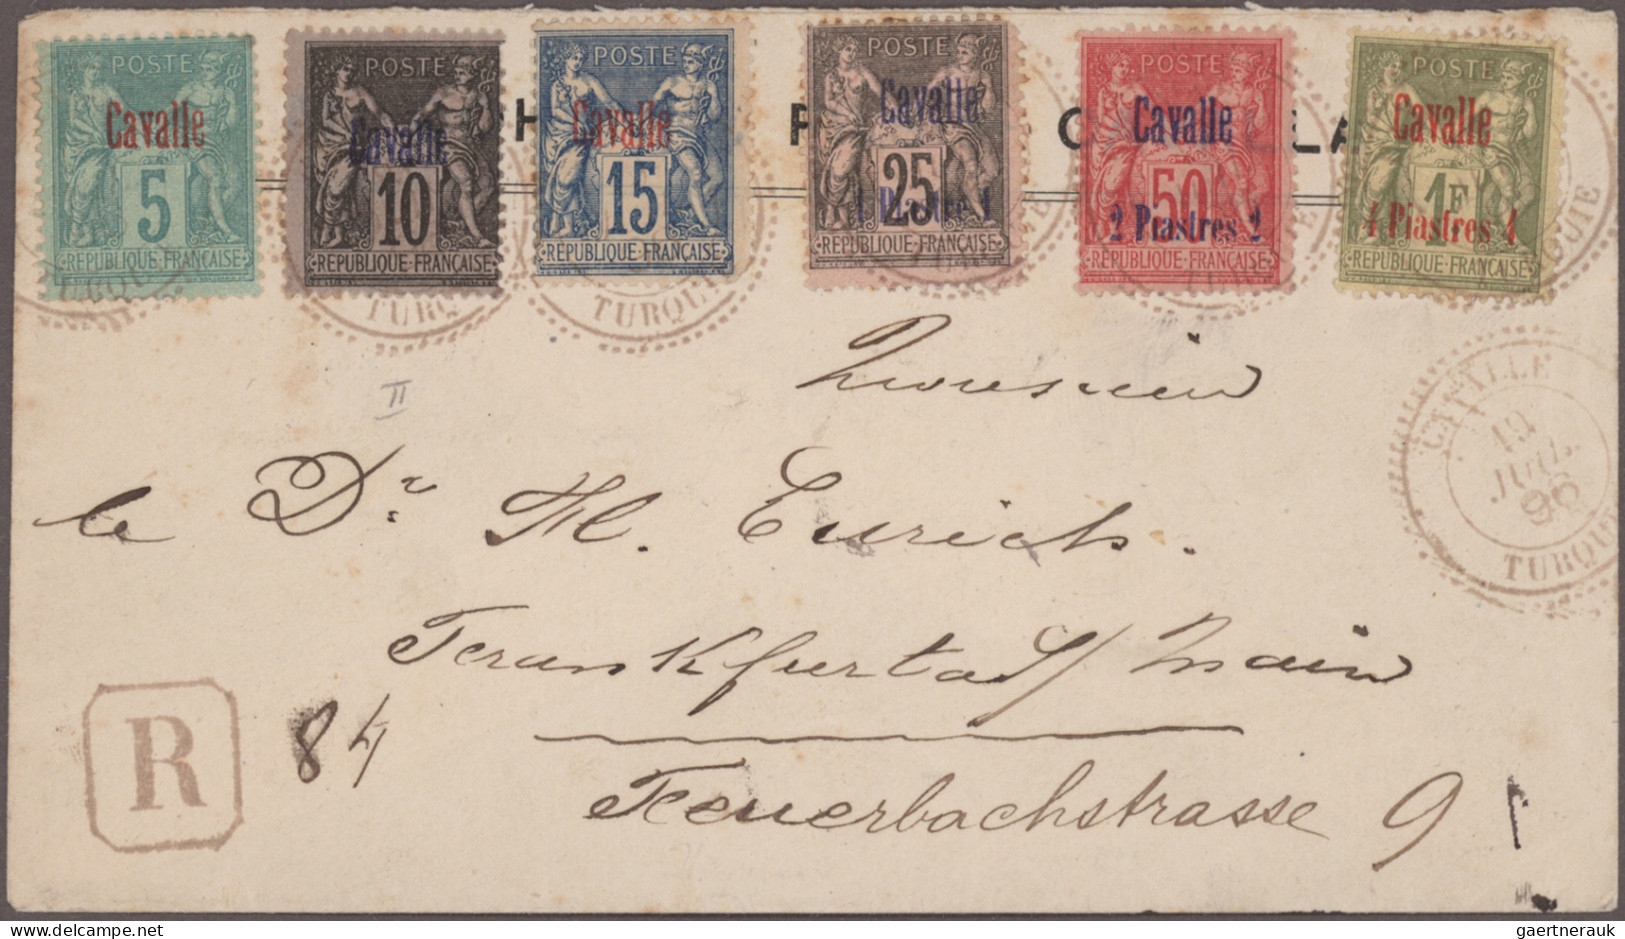 POSTE POSTE POSTE POSTE POSTE POSTE
Cavalle Cavalle Cavalle Cavalle Cavalle Cavalle
5 10 15 25 50 1F
1 Piastre 1 2 Piastres 2 4 Piastres 4
REPUBLIQUE FRANÇAISE REPUBLIQUE FRANÇAISE REPUBLIQUE FRANÇAISE REPUBLIQUE FRANÇAISE REPUBLIQUE FRANÇAISE REPUBLIQUE FRANÇAISE
TURQUIE TURQUIE
Monsieur
II
le Dr Fl. Eurich.
CAVALLE
19
JUIL
98
TURQUIE
Frankfurt a/ Main
R
84
Feuerbachstrasse 9
gaertnerauk